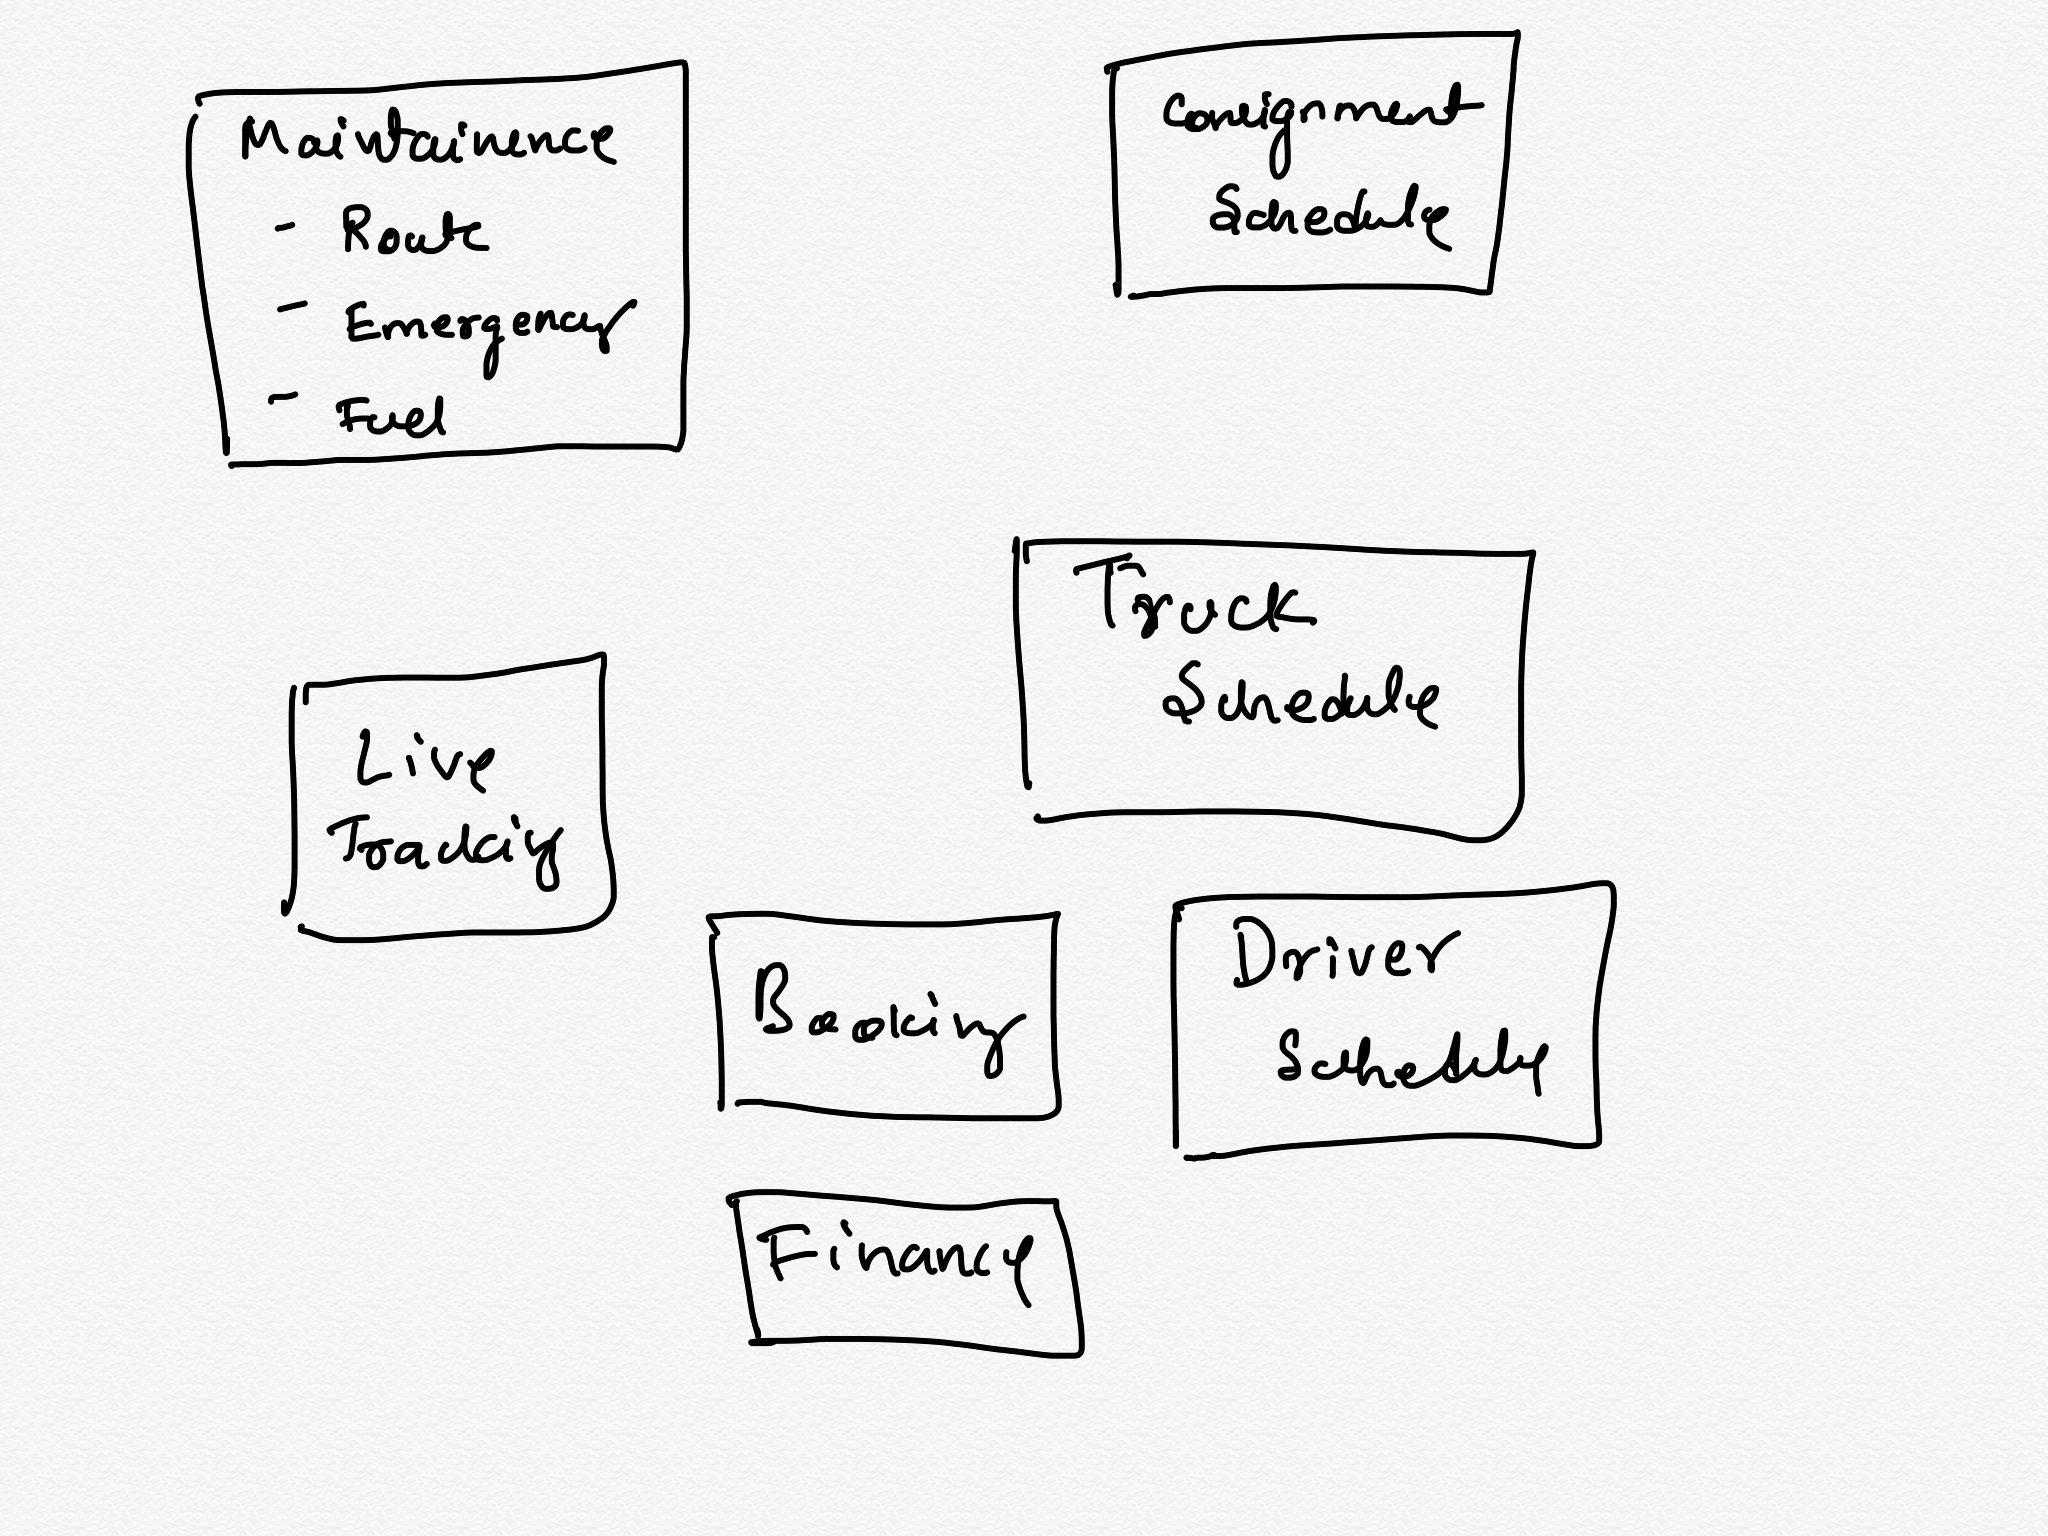 Maintainence
- Route
- Emergency
- Fuel
Consignment
Schedule
Truck
Schedule
Live
Tracking
Booking
Driver
Schedule
Finance